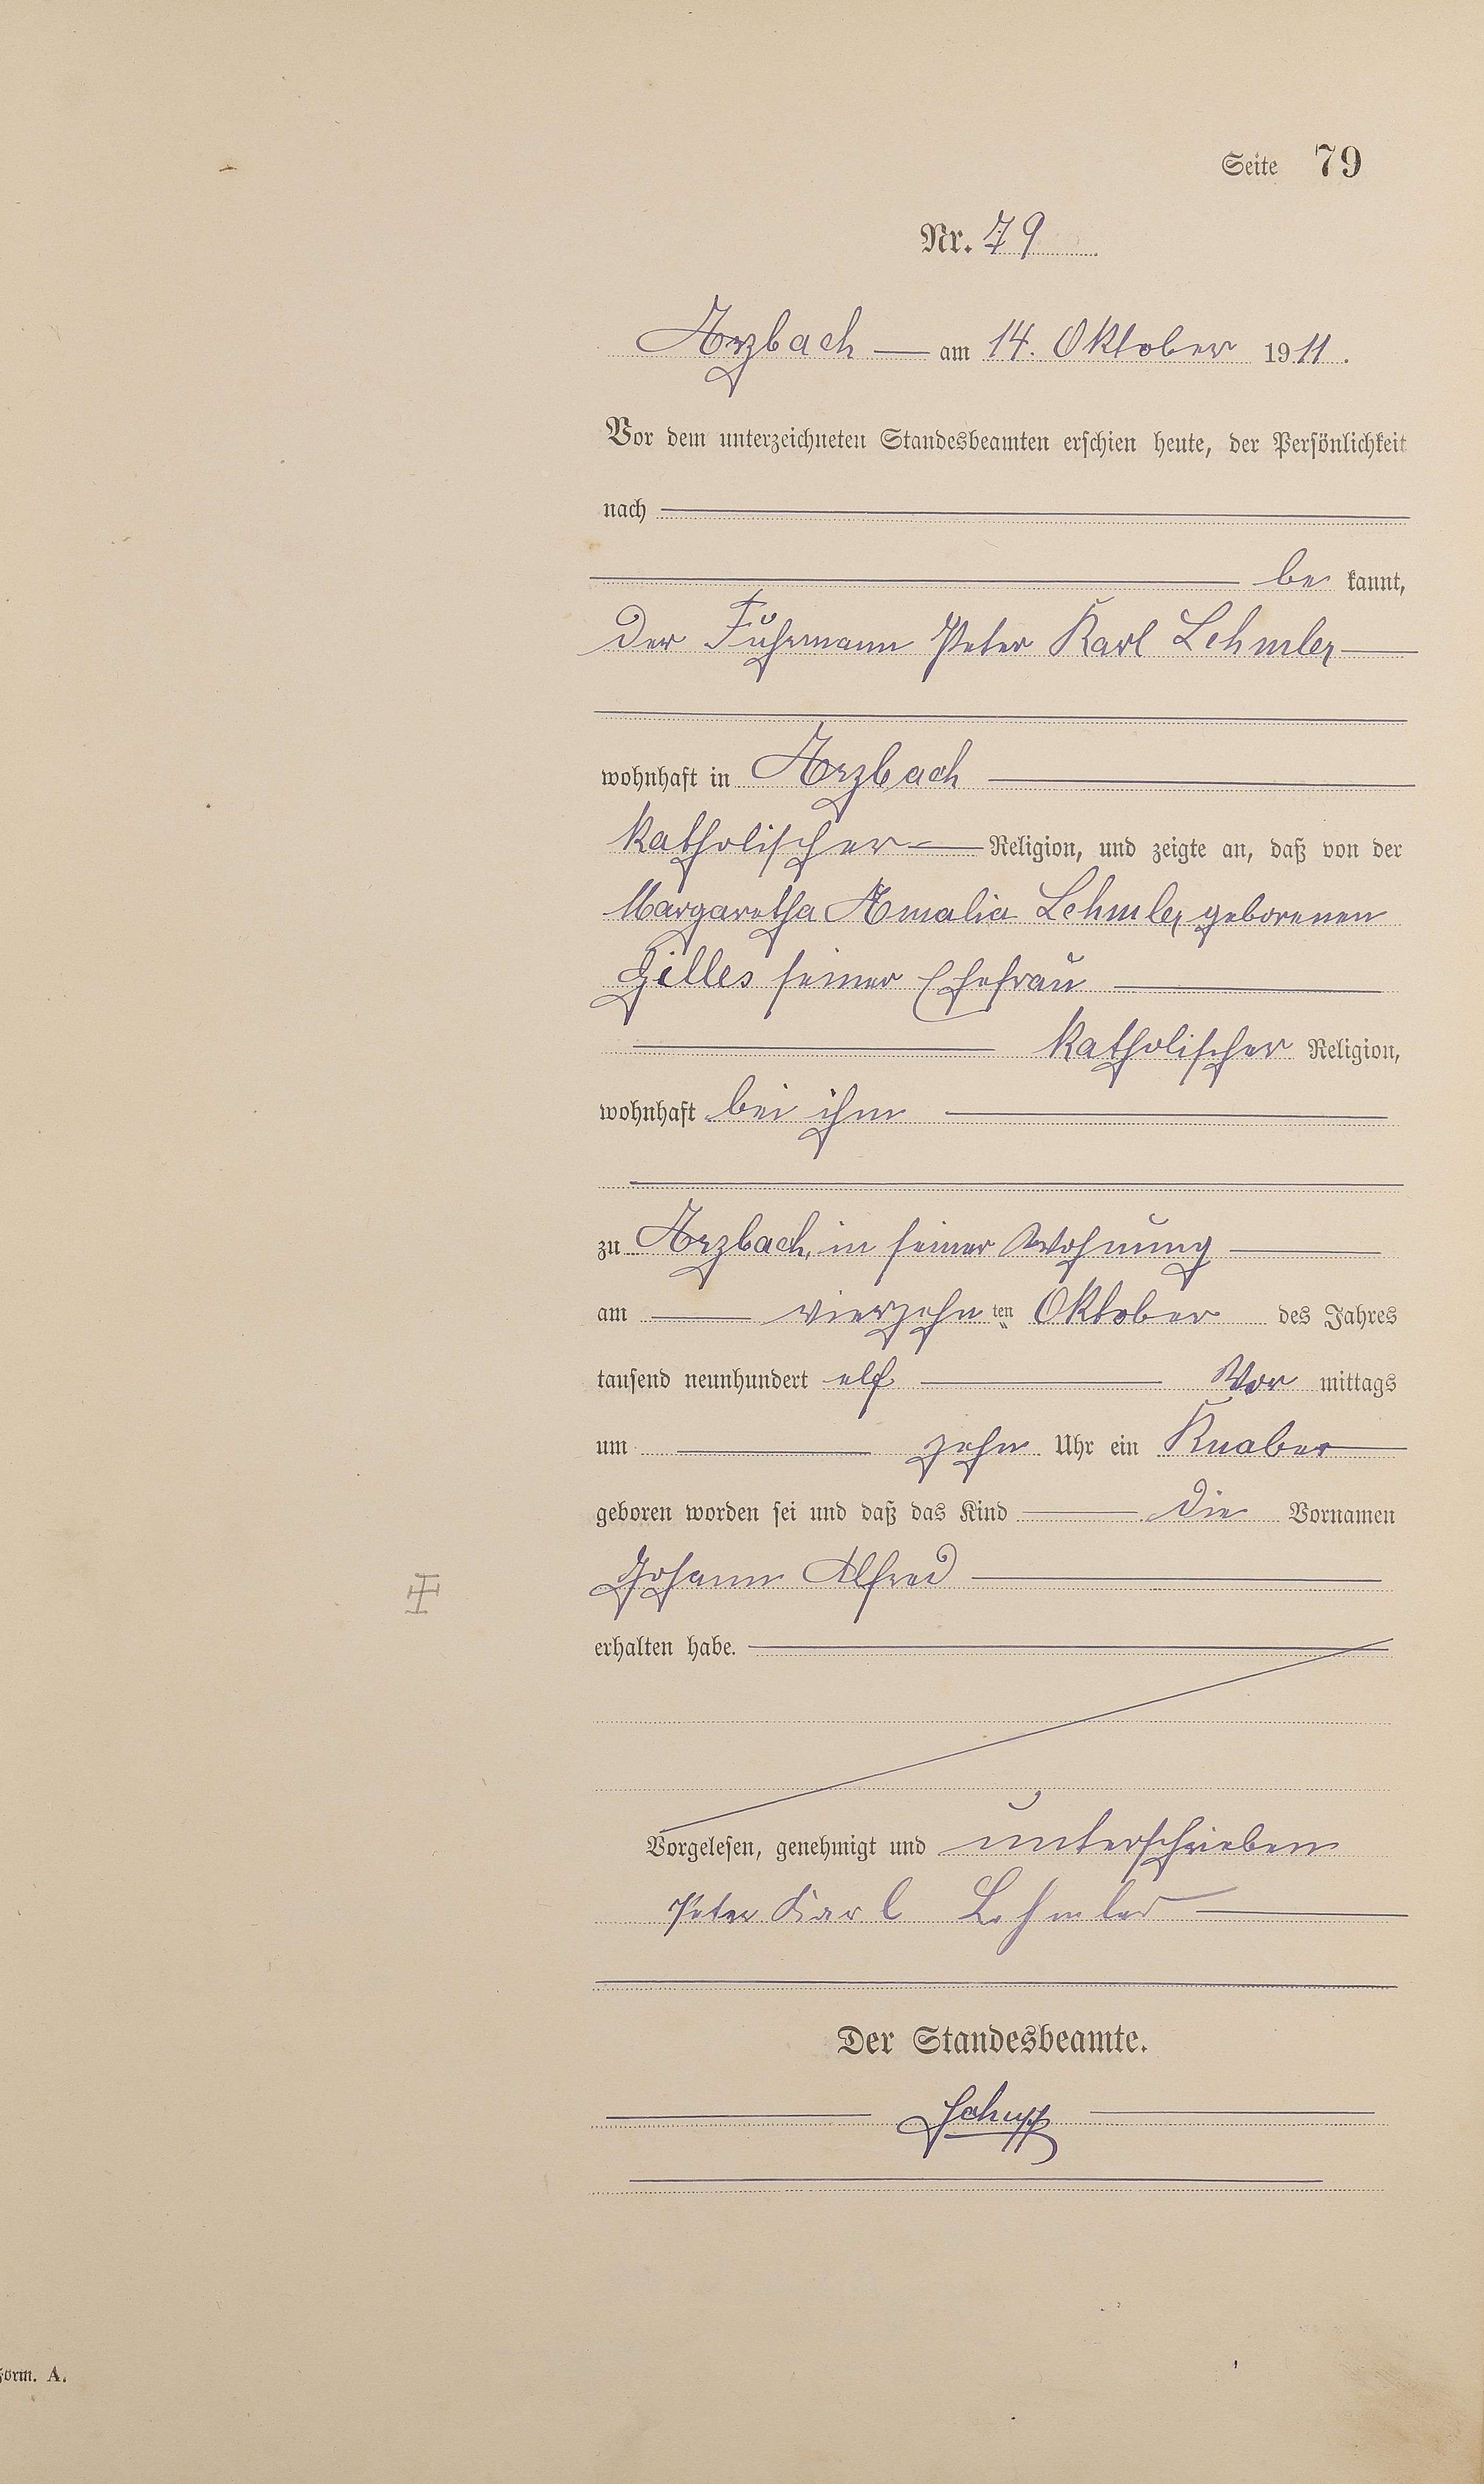 Seite 79
Nr. 79
Arzbach am 14. Oktober 1911.
Vor dem unterzeichneten Standesbeamten erschien heute, der Persönlichkeit
nach
be kannt,
der Fuhrmann Peter Karl Lehmler
wohnhaft in Arzbach
katholischer Religion, und zeigte an, daß von der
Margaretha Amalia Lehmler geborenen
Gilles seiner Ehefrau
katholischer Religion,
wohnhaft bei ihm
zu Arzbach, in seiner Wohnung
am vierzehn ten Oktober des Jahres
tausend neunhundert elf Vor mittags
um zehn Uhr ein Knabe
geboren worden sei und daß das Kind die Vornamen
Johann Alfred
erhalten habe.
Vorgelesen, genehmigt und unterschrieben
Peter Karl Lehmler
Der Standesbeamte.
Schupp
Form. A.